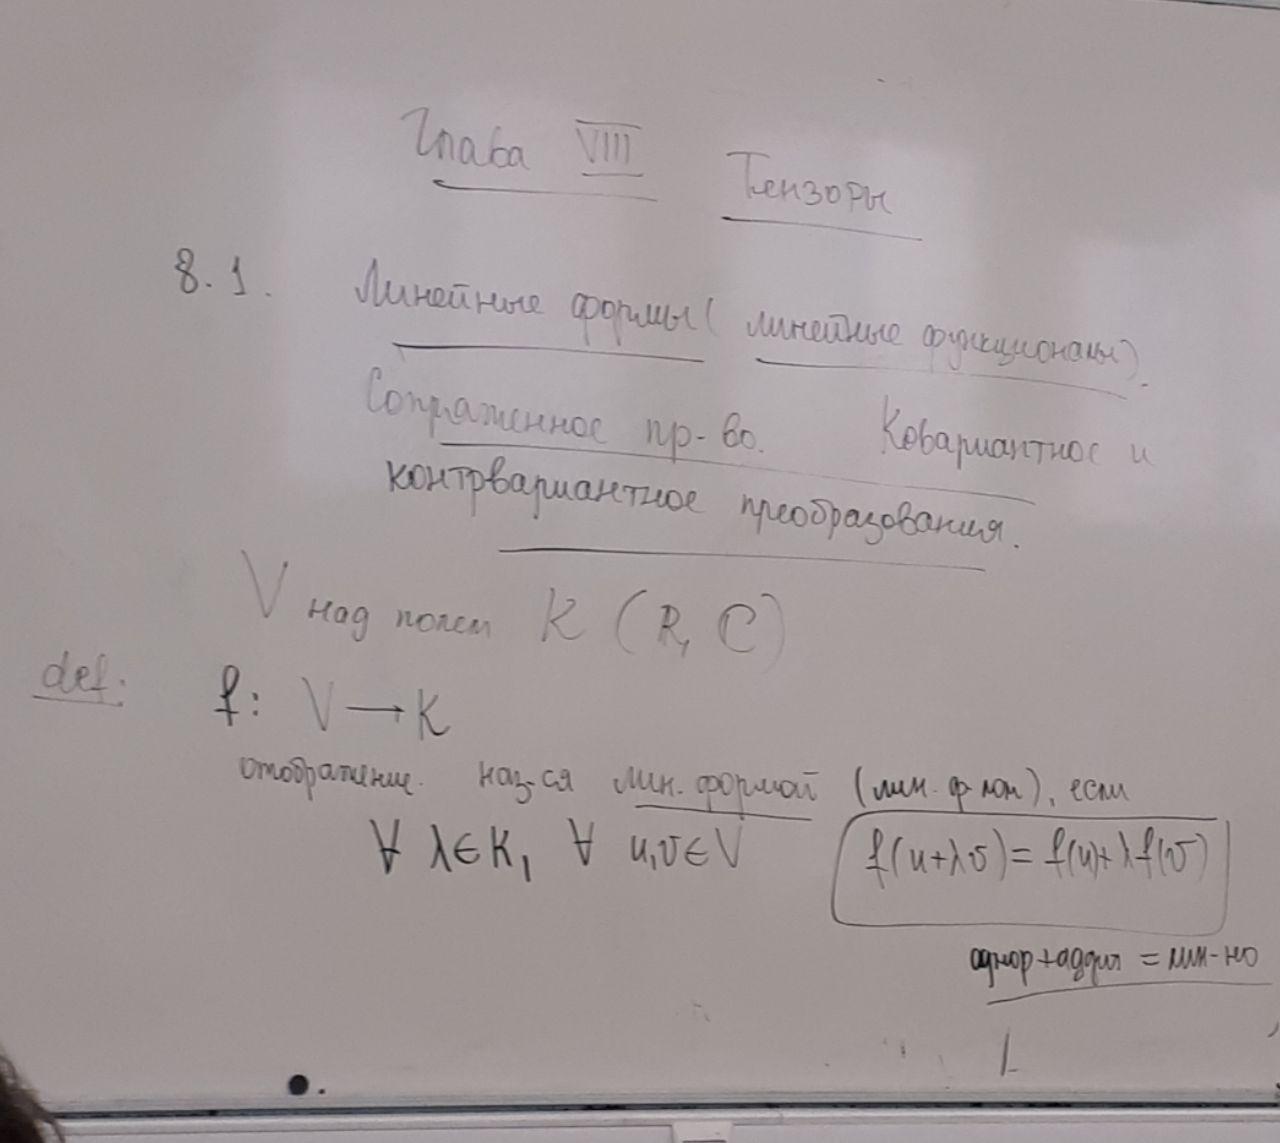 Глава VIII Тензоры
8.1. Линейные формы (линейные функционалы).
Сопряженное пр-во. Ковариантное и
контрвариантное преобразования.
V над полем K (R, C)
def: f: V → K
отображение. наз-ся лин. формой (лин. ф-лом), если
∀ λ∈K, ∀ u,v∈V f(u+λv)=f(u)+λf(v)
однор+аддит = лин-но